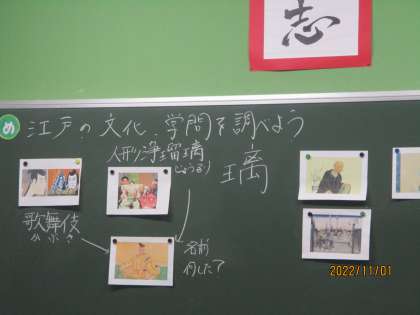 志
め 江戸の文化、学問を調べよう
人形浄瑠璃
じょうるり
璃
歌舞伎
かぶき
名前
何した？
2022/11/01